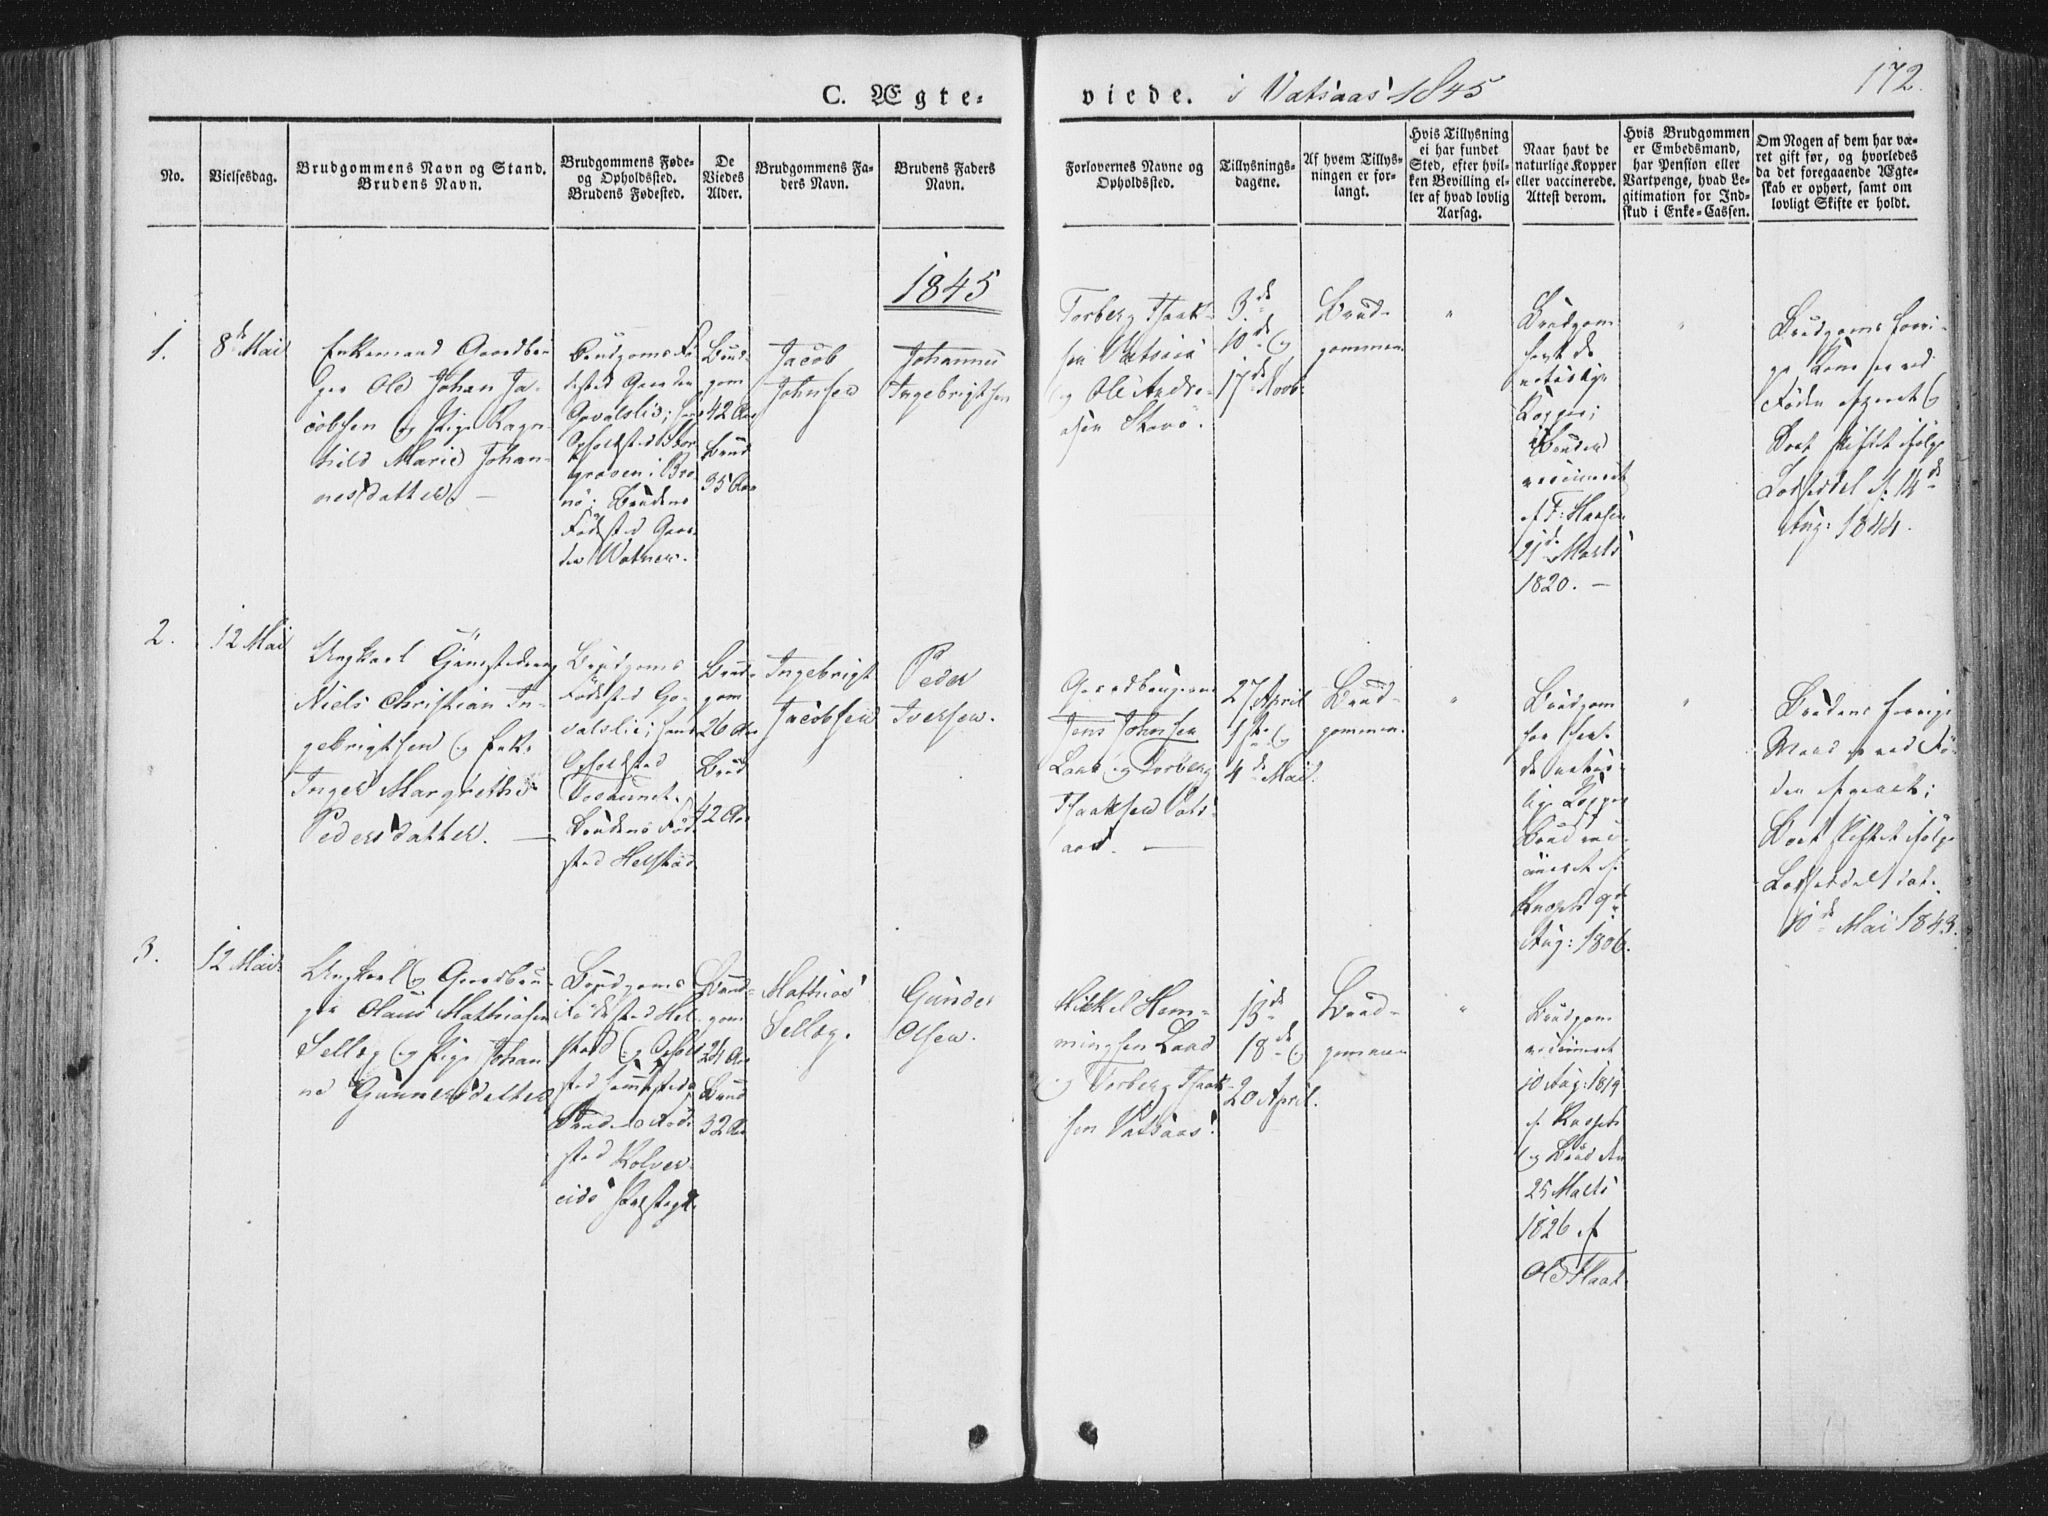 C. Ægte-
viede. i Vatsaas 1845
172.
No.
Vielsesdag.
Brudgommens Navn og Stand.
Brudens Navn.
Brudgommens Føde-
og Opholdssted.
Brudens Fødested.
De
Viedes
Alder.
Brudgommens Fa-
ders Navn.
Brudens Faders
Navn.
Forlovernes Navne og
Opholdssted.
Tillysnings-
dagene.
Af hvem Tillys-
ningen er for-
langt.
Hvis Tillysning
ei har fundet
Sted, efter hvil-
ken Bevilling el-
ler af hvad lovlig
Aarsag.
Naar havt de
naturlige Kopper
eller vaccinerede.
Attest derom.
Hvis Brudgommen
er Embedsmand,
har Pension eller
Vartpenge, hvad Le-
gitimation for Ind-
skud i Enke-Cassen.
Om Nogen af dem har væ-
ret gift før, og hvorledes
da det foregaaende Ægte-
skab er ophørt, samt om
lovligt Skifte er holdt.
1845
1.
8de Mai
Enkemand Gaardbru-
ger Ole Johan Ja-
cobsen og Pige Ragn-
hild Marie Johan-
nesdatter. —
Brudgoms Fø-
dested Gaarden
Govalsliv;
Opholdssted Stor-
graven i Brø-
nø; Brudens
Fødested Gaar-
den Watner.
Brud-
gom
42 Aar
Brud
35 Aar
Jacob
Johnsen
Johannes
Ingebrigtsen
Torberg Isaak-
sen Vatsaas
og Ole Andre-
asen Skarø.
3de
10de og
17de Novb:
Brud-
gommen
"
Brudgom
havt de
naturlige
Kopper;
Bruden
vaccineret
af F: Hansen
21de Marts
1820. —
"
Brudgoms forri-
ge Kone er ved
Døden afgaaet og
Boet skiftet ifølge
Lovseddel af 14de
Aug: 1844.
2.
12 Mai
Ungkarl Tjenestedreng
Niels Christian In-
gebrigtsen og Enke
Inger Margrethe
Pedersdatter. —
Brudgoms
Fødested Go-
valsliv; hans
Opholdssted
Brudens Fød-
sted Helstad
Brud-
gom
26 Aar
Brud
42 Aar
Ingebrigt
Jacobsen
Peder
Iversen.
Gaardbrugerne
Jens Johnsen
Laab og Torberg
Isaaksen Vats-
aas. —
27 April
1ste og
4de Mai.
Brud-
gommen.
"
Brudgom
har havt
de natur-
lige Kopper
Brud vac-
cineret af
9de
Aug: 1806.
"
Brudens forrige
Mand er ved Dø-
den afgaaet;
Boet skiftet ifølge
Lovseddel dat.
10de Mai 1843.
3.
12 Mai
Ungkarl og Gaardbru-
ger Claus Mathiasen
Sellæg og Pige Johan-
ne Gunnersdatter
Brudgoms
Fødested Hel-
stad og Ophold-
sted sammesteds
Brudens Fød-
sted Kolver-
eids Præstegd.
Brud-
gom
24 Aar
Brud
32 Aar
Mathias
Sellæg.
Gunder
Olsen.
Mikkel Hem-
mingsen Laad
og Torberg Isaak-
sen Vatsaas.
13de
18de og
20 April.
Brud-
gommen
"
Brudgom
vaccineret
10 Aug: 1819
af
og Brud den
25 Marts
1826 af
Ole Flaat.